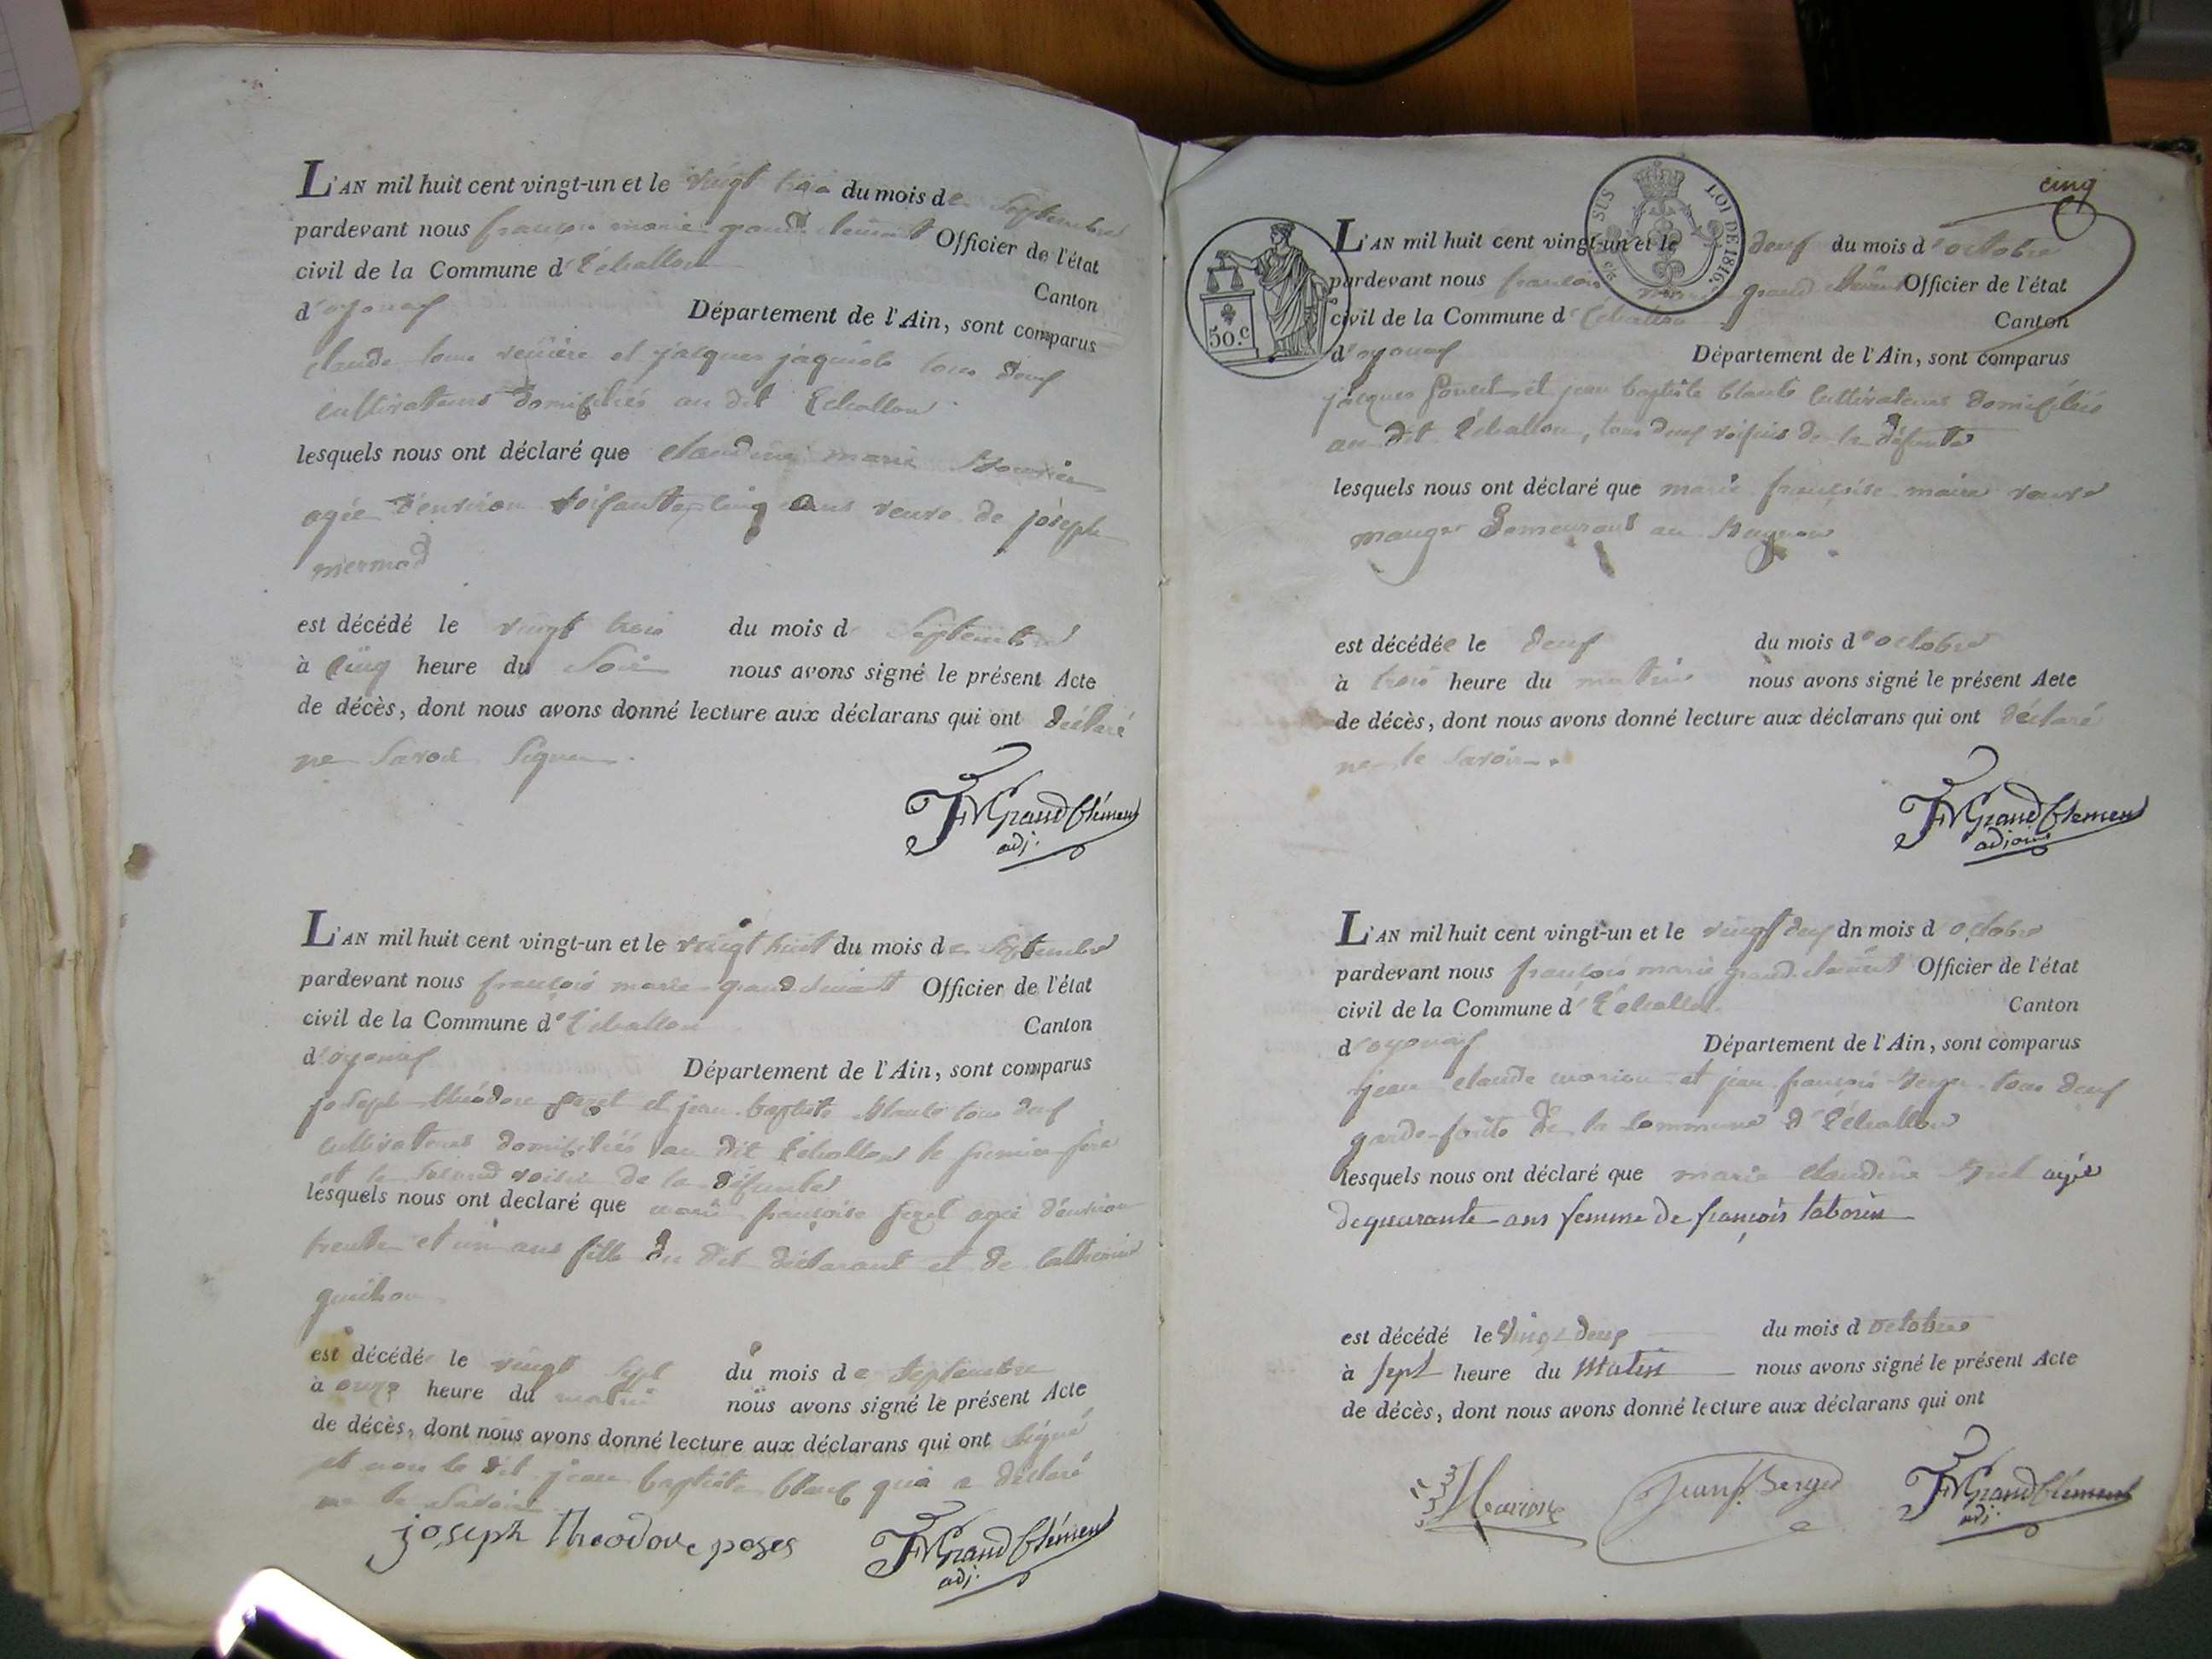 L'AN mil huit cent vingt-un et le vingt trois du mois de Septembre
pardevant nous françois marie grand clement Officier de l'état
civil de la Commune d'Echallon Canton
d'oyonnax Département de l'Ain, sont comparus
claude et jacques tous deux
cultivateurs domiciliés au dit Echallon
lesquels nous ont déclaré que claudine marie
agée d'environ soisante cinq ans veuve de joseph
mermod
est décédé le vingt trois du mois d Septembre
à cinq heure du Soir nous avons signé le présent Acte
de décès, dont nous avons donné lecture aux déclarans qui ont déclaré
ne Savoir Signer.
FM Grand Clément
adj.
L'AN mil huit cent vingt-un et le vingt huit du mois de Septembre
pardevant nous françois marie grand clement Officier de l'état
civil de la Commune d'Echallon Canton
d'oyonnax Département de l'Ain, sont comparus
joseph théodore et jean baptiste tous deux
cultivateurs domiciliés au dit Echallon le premier père
et le second voisin de la défunte
lesquels nous ont declaré que marie françoise agée d'environ
trente et un ans fille du dit déclarant et de Catherine
est décédé le vingt Sept du mois de Septembre
à onze heure du matin nous avons signé le présent Acte
de décès, dont nous avons donné lecture aux déclarans qui ont Signé
et non le dit jean baptiste qui a déclaré
ne le Savoir
joseph theodore poses
FM Grand Clément
adj.
cinq
SUS LOI DE 1816.
50.c
L'AN mil huit cent vingt-un et le deux du mois d'octobre
pardevant nous françois marie grand clément Officier de l'état
civil de la Commune d'Echallon Canton
d'oyonnax Département de l'Ain, sont comparus
jacques et jean baptiste cultivateurs domiciliés
au dit Echallon, tous deux voisins de la défunte
lesquels nous ont déclaré que marie françoise maire veuve
demeurant au
est décédée le deux du mois d'octobre
à trois heure du matin nous avons signé le présent Acte
de décès, dont nous avons donné lecture aux déclarans qui ont déclaré
ne le Savoir.
FM Grand Clément
adjoint
L'AN mil huit cent vingt-un et le vingt deux dn mois d'octobre
pardevant nous françois marie grand clément Officier de l'état
civil de la Commune d'Echallon Canton
d'oyonnax Département de l'Ain, sont comparus
jean claude marion et jean françois Berger tous deux
garde forêts de la Commune d'Echallon
lesquels nous ont déclaré que marie claudine agée
de quarante ans femme de françois tabourin
est décédé le vingt deux du mois d octobre
à sept heure du Matin nous avons signé le présent Acte
de décès, dont nous avons donné lecture aux déclarans qui ont
Marion Jean f. Berger FM Grand Clément
adj.